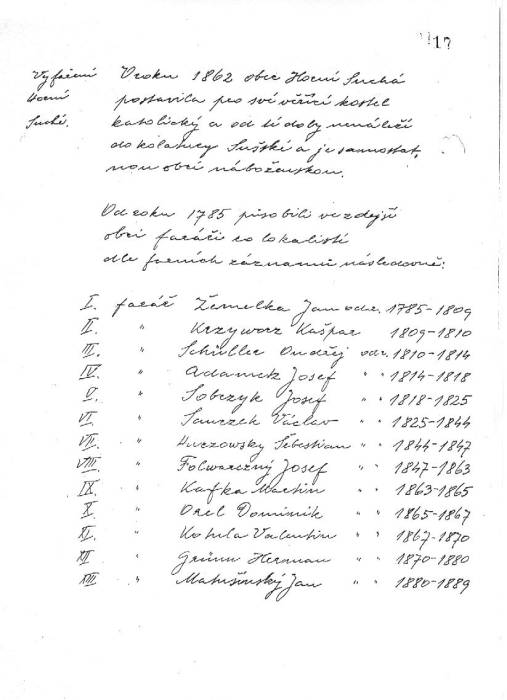 17
Vyfaření
Horní
Suché.
V roku 1862 obec Horní Suchá
postavila pro své věřící kostel
katolický a od té doby nenáleží
do kolatury Sušské a je samostat,
nou obcí náboženskou.
Od roku 1785 působili ve zdejší
obci faráři co lokalisti
dle farních záznamů následovně:
I. farář Žemelka Jan od r. 1785-1809
II. " Krzywocz Kašpar 1809-1810
III. " Schüller Ondřej od r. 1810-1814
IV. " Adametz Josef " " 1814-1818
V. " Sobczyk Josef " " 1818-1825
VI. " Sauczek Václav " " 1825-1844
VII. " Huczowsky Šebestian " " 1844-1847
VIII " Folwarczný Josef " " 1847-1863
IX. " Kafka Martin " " 1863-1865
X. " Orel Dominik " " 1865-1867
XI. " Kotula Valentin " " 1867-1870
XII " Grünn Herman " " 1870-1880
XIII " Matušinský Jan " " 1880-1889